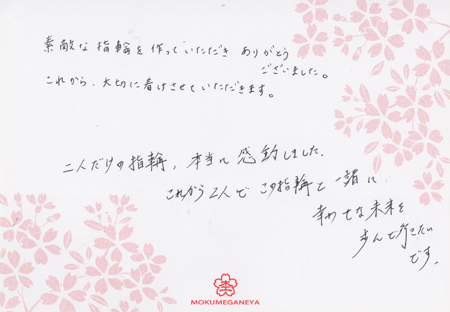 素敵な指輪を作っていただき ありがとう
ございました。
これから、大切に着けさせていただきます。
二人だけの指輪、本当に感動しました。
これから2人で この指輪と一緒に
幸わせな未来を
歩んで行きたい
です。
MOKUMEGANEYA